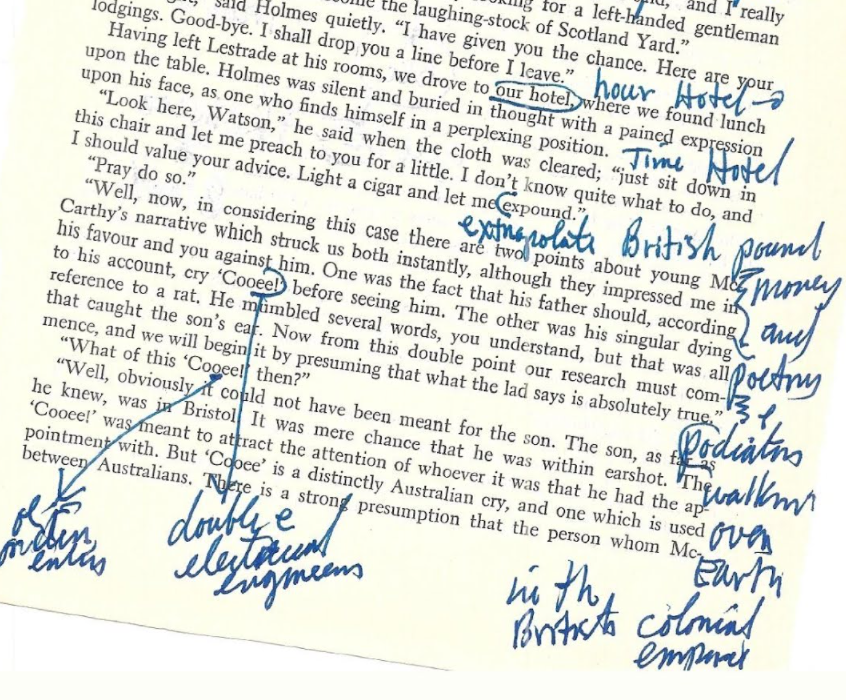 and I really
looking for a left-handed gentleman
become the laughing-stock of Scotland Yard."
said Holmes quietly. "I have given you the chance. Here are your
lodgings. Good-bye. I shall drop you a line before I leave."
Having left Lestrade at his rooms, we drove to our hotel, where we found lunch
upon the table. Holmes was silent and buried in thought with a pained expression
upon his face, as one who finds himself in a perplexing position.
"Look here, Watson," he said when the cloth was cleared; "just sit down in
this chair and let me preach to you for a little. I don't know quite what to do, and
I should value your advice. Light a cigar and let me expound."
"Pray do so."
"Well, now, in considering this case there are two points about young Mc-
Carthy's narrative which struck us both instantly, although they impressed me in
his favour and you against him. One was the fact that his father should, according
to his account, cry 'Cooee!' before seeing him. The other was his singular dying
reference to a rat. He mumbled several words, you understand, but that was all
that caught the son's ear. Now from this double point our research must com-
mence, and we will begin it by presuming that what the lad says is absolutely true."
"What of this 'Cooee!' then?"
"Well, obviously it could not have been meant for the son. The son, as far as
he knew, was in Bristol. It was mere chance that he was within earshot. The
'Cooee!' was meant to attract the attention of whoever it was that he had the ap-
pointment with. But 'Cooee' is a distinctly Australian cry, and one which is used
between Australians. There is a strong presumption that the person whom Mc-
hour Hotel
Time Hotel
extrapolate British pound
money
and
poetry
podiatrs
walkin
over
Earth
in th
British colonial
empire
double e
electrical
engineers